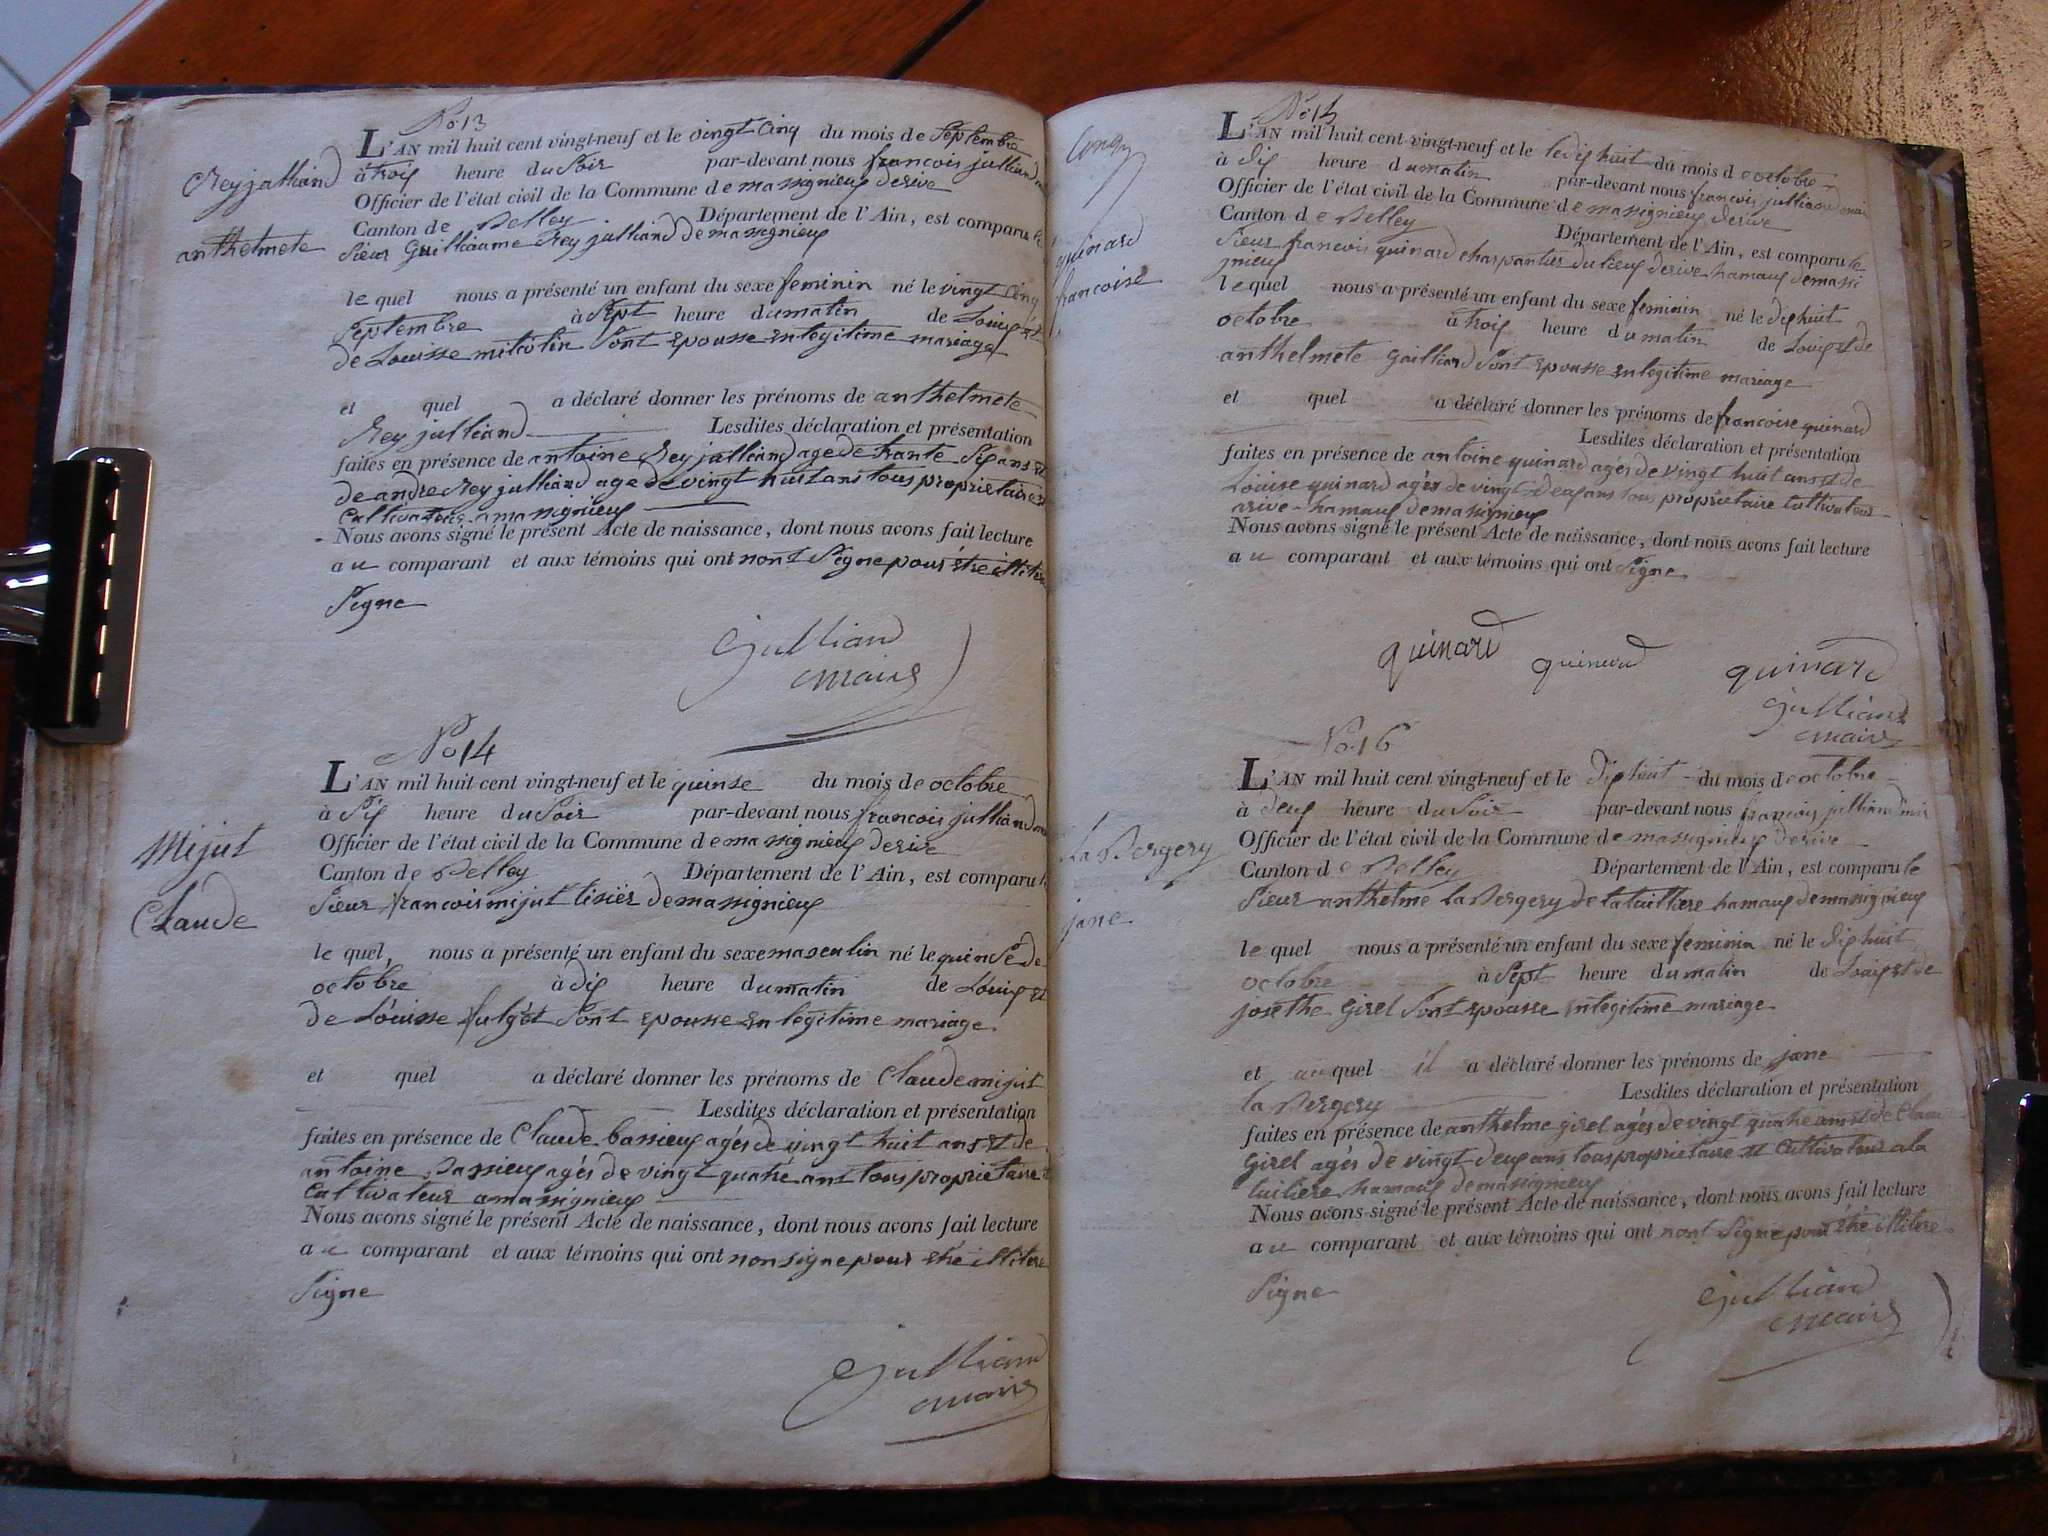 No 13
Rey julliand
anthelmete
L'AN mil huit cent vingt-neuf et le vingt cinq du mois de Septembre
à trois heure du Soir par-devant nous francois julliand
Officier de l'état civil de la Commune de massignieux derive
Canton de Belley Département de l'Ain, est comparu le
Sieur Guilliaume Rey julliand de massignieux
le quel nous a présenté un enfant du sexe feminin né le vingt cinq
Septembre à Sept heure du matin de Louis et
de Louisse mitiolin Sont epousse en legitime mariage
et quel a déclaré donner les prénoms de anthelmete
Rey julliand Lesdites déclaration et présentation
faites en présence de antoine Rey julliand age de trante Sis ans et
de andre Rey julliand age de vingt huit ans tous proprietaire et
Cultivateur a massignieux
Nous avons signé le présent Acte de naissance, dont nous avons fait lecture
au comparant et aux témoins qui ont nont Signe pour être illitere
Signe
Julliand
maire
No 14
Mijut
Claude
L'AN mil huit cent vingt-neuf et le quinse du mois de octobre
à Sis heure du Soir par-devant nous francois julliand
Officier de l'état civil de la Commune de massignieux derive
Canton de Belley Département de l'Ain, est comparu le
Sieur francois mijut tisier de massignieux
le quel, nous a présenté un enfant du sexe masculin né le quinse de
octobre à dis heure du matin de Louis et
de Louisse fulget Sont epousse en legitime mariage
et quel a déclaré donner les prénoms de Claude mijut
Lesdites déclaration et présentation
faites en présence de Claude bassieux agés de vingt huit ans et de
antoine Bassieux agés de vingt quatre ant tous proprietaire et
Cultivateur a massignieux
Nous avons signé le présent Acte de naissance, dont nous avons fait lecture
au comparant et aux témoins qui ont non signe pour etre illitere
Signe
Julliand
maire
No 15
quinard
francoise
L'AN mil huit cent vingt-neuf et le le dis huit du mois de octobre
à dis heure du matin par-devant nous francois julliand mair
Officier de l'état civil de la Commune de massignieux derive
Canton de Belley Département de l'Ain, est comparu le
Sieur francois quinard charpantier du lieux derive hamaux de massi
gnieux
le quel nous a présenté un enfant du sexe feminin né le dis huit
octobre à trois heure du matin de Louis et de
anthelmete gailliard Sont epousse en legitime mariage
et quel a déclaré donner les prénoms de francoise quinard
Lesdites déclaration et présentation
faites en présence de antoine quinard agés de vingt huit ans et de
Louise quinard agés de vingt deux ans tous proprietaire cultivateur
arive hamaux de massignieux
Nous avons signé le présent Acte de naissance, dont nous avons fait lecture
au comparant et aux témoins qui ont Signe
quinard quinard quinard
Julliand
maire
No 16
La Bergery
jane
L'AN mil huit cent vingt-neuf et le dis huit du mois de octobre
à deux heure du Soir par-devant nous francois julliand mair
Officier de l'état civil de la Commune de massignieux derive
Canton de Belley Département de l'Ain, est comparu le
Sieur anthelme La Bergery de la tuilliere hamaux de massignieux
le quel nous a présenté un enfant du sexe feminin né le dis huit
octobre à Sept heure du matin de Louis et de
josethe girel Sont epousse en legitime mariage
et au quel il a déclaré donner les prénoms de jane
la Bergery Lesdites déclaration et présentation
faites en présence de anthelme girel agés de vingt quatre ans et de Clau
Girel agés de vingt deux ans tous proprietaire et Cultivateur a la
tuiliere hamaux de massignieux
Nous avons signé le présent Acte de naissance, dont nous avons fait lecture
au comparant et aux témoins qui ont nont Signe pour être illitere
Signe
Julliand
maire